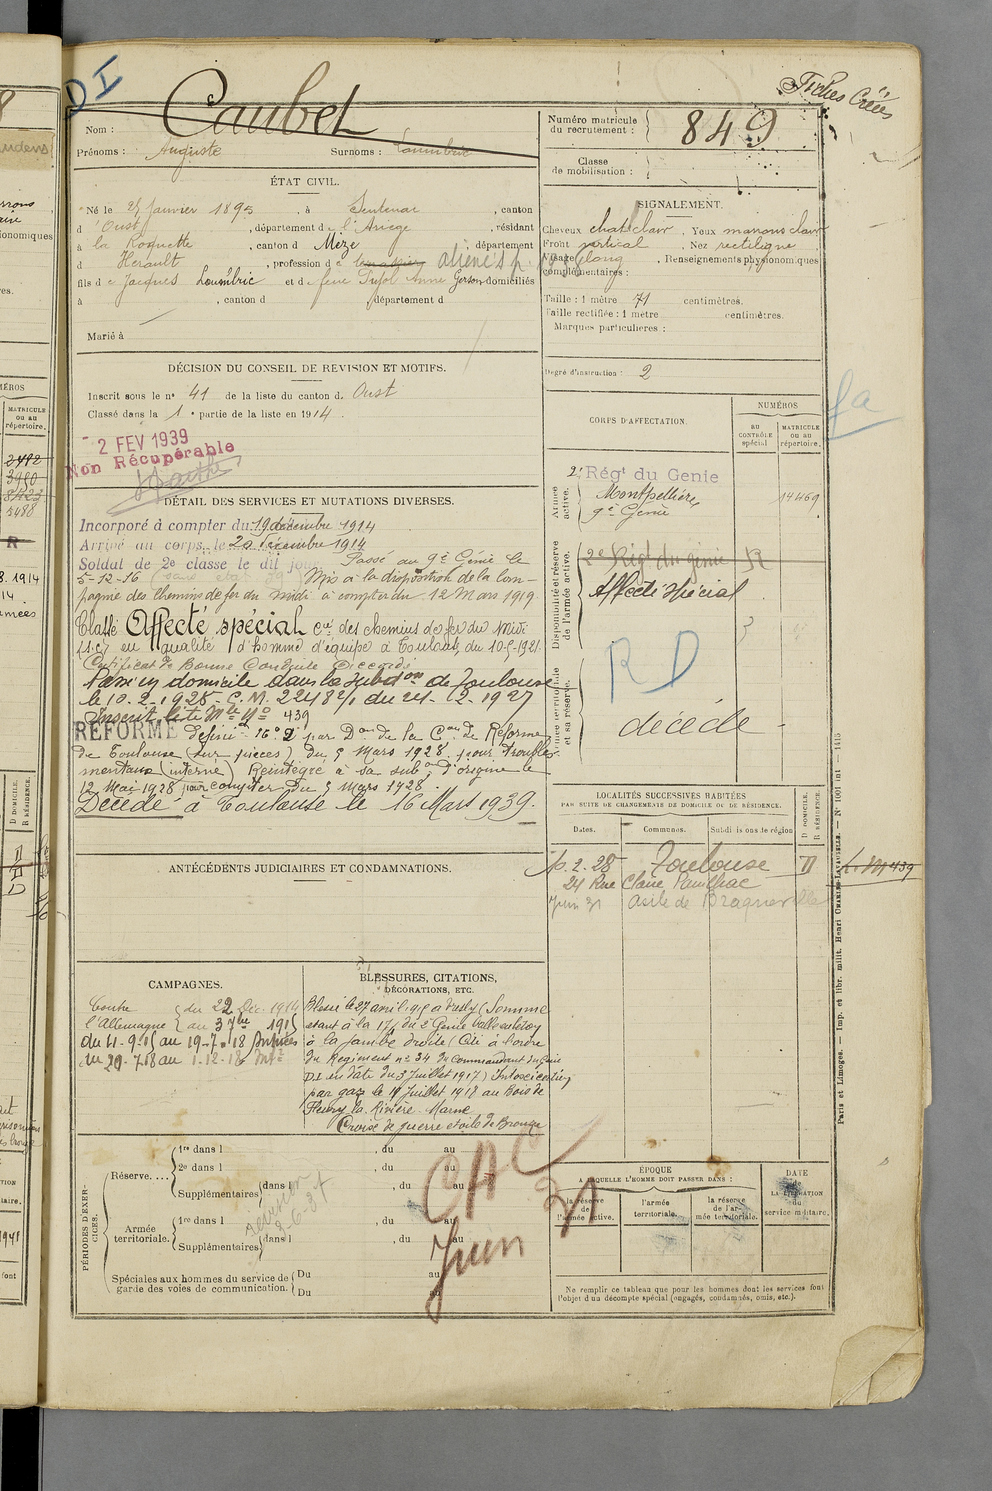 DI
Fiches Créées
Nom : Caubet
Prénoms : Auguste Surnoms : Loumbric
Numéro matricule du recrutement : 849
Classe de mobilisation :
ÉTAT CIVIL.
Né le 25 Janvier 1895, à Sentenac, canton
d'Oust, département de l'Ariège, résidant
à la Roquette, canton de Mèze, département
d Hérault, profession de aliéné s.p.
fils de Jacques Loumbric et de feue Pujol Anne domiciliés
à , canton d , département d
Marié à
SIGNALEMENT.
Cheveux chat clair. Yeux marrons clair
Front vertical, Nez rectiligne
Visage long, Renseignements physionomiques
complémentaires :
Taille : 1 mètre 71 centimètres.
Taille rectifiée : 1 mètre centimètres.
Marques particulières :
Degré d'instruction : 2
DÉCISION DU CONSEIL DE REVISION ET MOTIFS.
Inscrit sous le n° 41 de la liste du canton d Oust
Classé dans la 1e partie de la liste en 1914.
- 2 FEV 1939
Non Récupérable
CORPS D'AFFECTATION.
NUMÉROS
AU CONTRÔLE spécial
MATRICULE ou au répertoire.
Armée active.
2e Régt du Genie
Montpellier
9e Génie
14469
Disponibilité et réserve de l'armée active.
2e Régt du génie R
Affecté Spécial
RD
Armée territoriale et sa réserve.
décédé
DÉTAIL DES SERVICES ET MUTATIONS DIVERSES.
Incorporé à compter du 19 décembre 1914
Arrivé au corps le 20 décembre 1914
Soldat de 2e classe le dit jour Passé au 9e Génie le
5-12-16 Mis à la disposition de la Com-
pagnie des Chemins de fer du Midi à compter du 12 Mars 1919.
Classé Affecté spécial Cie des chemins de fer du Midi
(s.c) en qualité d'homme d'équipe à Toulouse du 10-5-1921.
Certificat de Bonne Conduite Accordé
le 10-2-1928 - C.M. 2248 2/1 du 24-12-1927
Inscrit liste Mle N° 439
REFORMÉ Définif 16° 2 par Don de la Con de Réforme
de Toulouse (sur pièces) du 5 Mars 1928 pour troubles
mentaux (interné) Réintégré à sa subon d'origine le
12 Mai 1928 pour compter du 5 Mars 1928.
Décédé à Toulouse le 16 Mars 1939.
LOCALITÉS SUCCESSIVES HABITÉES
PAR SUITE DE CHANGEMENTS DE DOMICILE OU DE RÉSIDENCE.
Dates. Communes. Subdivisions de région
D DOMICILE. R RÉSIDENCE.
10.2.28 Toulouse D
24 Rue Claire Pauilhac
Juin 31 Asile de Braqueville
L.M 439
ANTÉCÉDENTS JUDICIAIRES ET CONDAMNATIONS.
CAMPAGNES.
Contre l'Allemagne du 22 Déc. 1914
au 3 7bre 1915
du 4-9-15 au 19-7-18 Armées
du 20-7-18 au 1-12-18
BLESSURES, CITATIONS,
DÉCORATIONS, ETC.
Blessé le 27 avril 1915 à (Somme
étant à la 17/4 du 2e Génie
à la jambe droite (Cité à l'ordre
du Régiment n° 34 du Commandant du Génie
D.I. en date du 3 Juillet 1917) Intoxication
par gaz le Juillet 1918 au Bois de
Fleury la Rivière - Marne
Croix de guerre étoile de Bronze
PÉRIODES D'EXERCICES.
Réserve....
1re dans l , du au
2e dans l , du au
Supplémentaires dans l , du au
Armée territoriale.
1re dans l , du au
Supplémentaires dans l , du au
Spéciales aux hommes du service de garde des voies de communication.
Du au
Du au
CAC
Juin 31
ÉPOQUE
A LAQUELLE L'HOMME DOIT PASSER DANS :
la réserve de l'armée active.
l'armée territoriale.
la réserve de l'armée territoriale.
DATE
DE LA LIBÉRATION du service militaire.
Ne remplir ce tableau que pour les hommes dont les services font
l'objet d'un décompte spécial (engagés, condamnés, omis, etc.).
Paris et Limoges. — Imp. et libr. milit. Henri CHARLES-LAVAUZELLE. — N° 1001 int — 1415